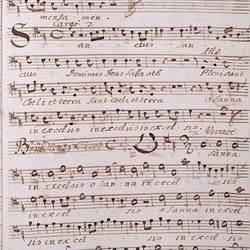 mensa men.
Largo
San ctus san
ctus Dominus Deus Sabaoth Pleni sunt
Coeli et terra sunt Coeli et terra osanna
in excelsis in excelsis in excel sis. Vivace
Benedictus tacet O sanna
in excelsis o sanna in excel
sis o sanna in excel
sis in excel sis in excel